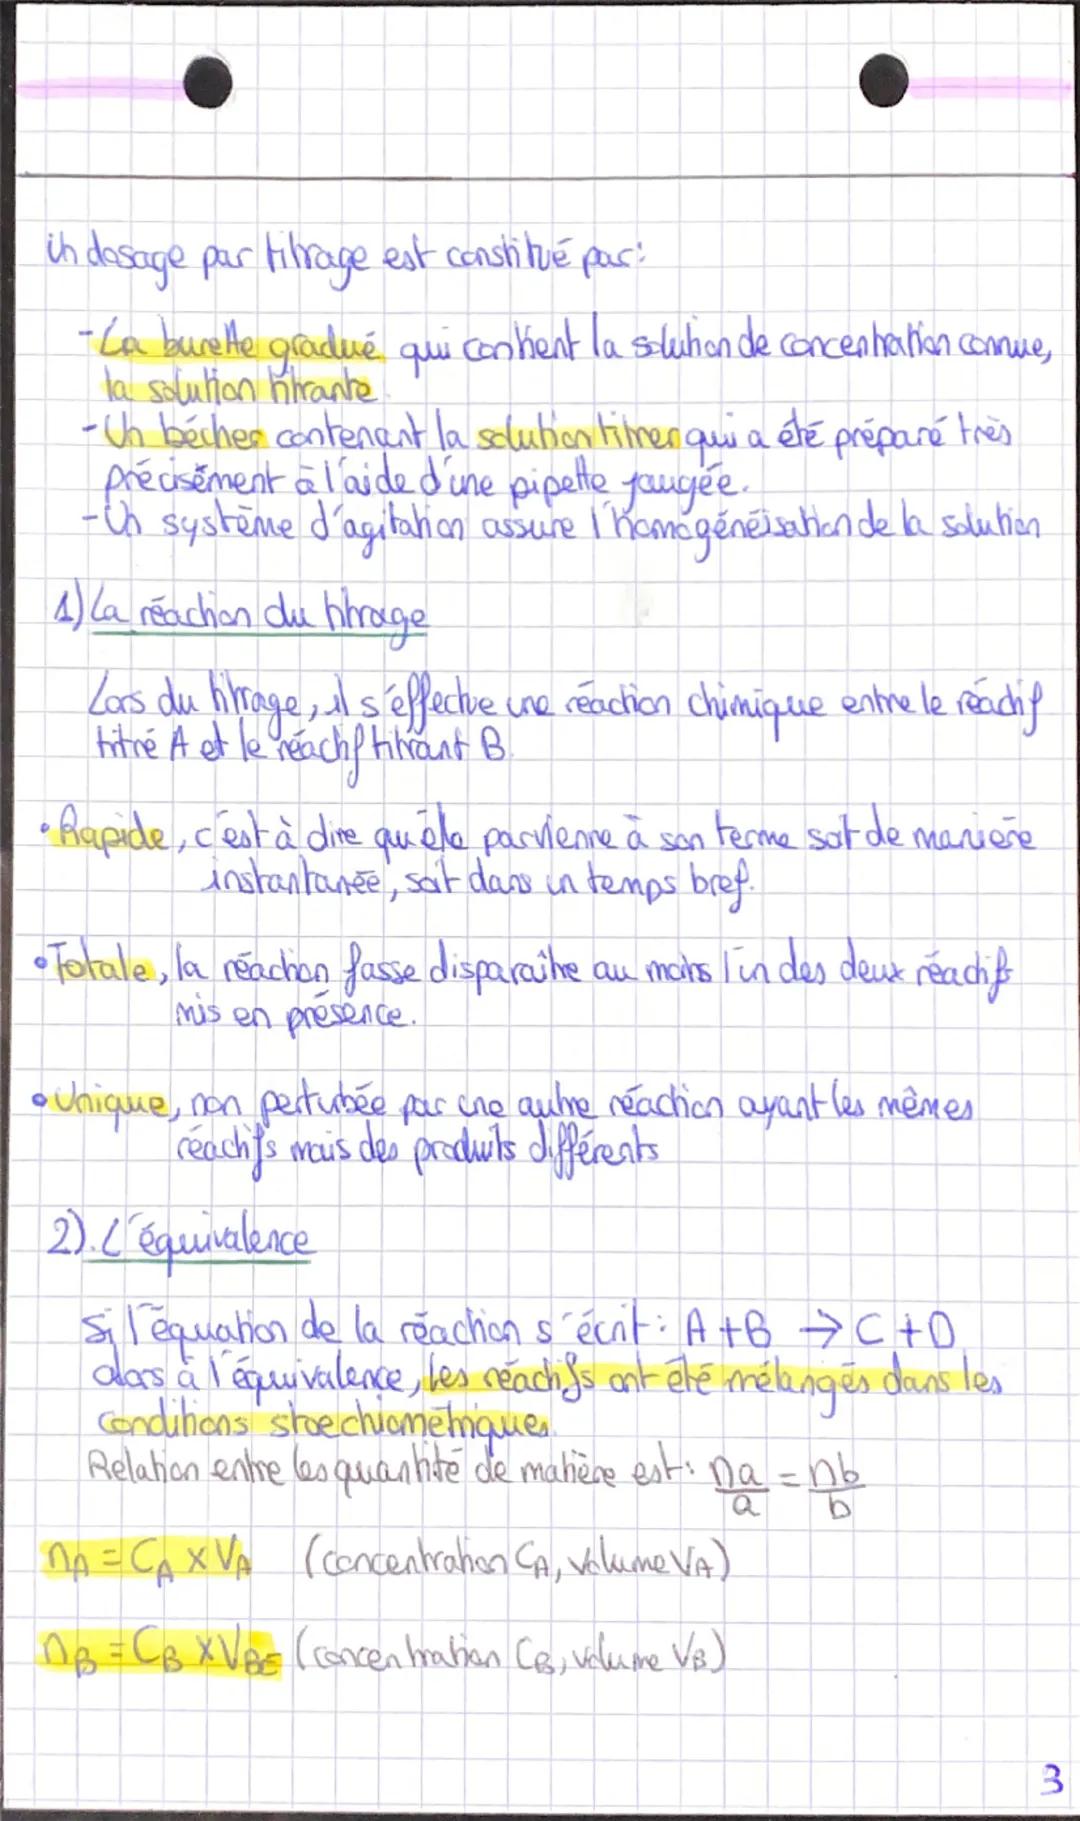 un dosage par titrage est constitué par:
- La burette gradué qui contient la solution de concentration connue,
la solution titrante.
- Un bécher contenant la solution titrer qui a été préparé très
précisément à l'aide d'une pipette jaugée.
- Un système d'agitation assure l'homogénéisation de la solution
1) La réaction du titrage
Lors du titrage, il s'effectue une réaction chimique entre le réactif
titré A et le réactif titrant B.
• Rapide, c'est à dire qu'elle parvienne à son terme soit de manière
instantanée, soit dans un temps bref.
• Totale, la réaction fasse disparaître au moins l'un des deux réactifs
mis en présence.
• Unique, non pertubée par une autre réaction ayant les mêmes
réactifs mais des produits différents
2). L'équivalence
Si l'équation de la réaction s'écrit: A + B → C + D
alors à l'équivalence, les réactifs ont été mélangés dans les
conditions stoechiométriques.
Relation entre les quantité de matière est: na/a = nb/b
nA = CA x VA (concentration CA, volume VA)
nB = CB x VBE (concentration CB, volume VB)
3